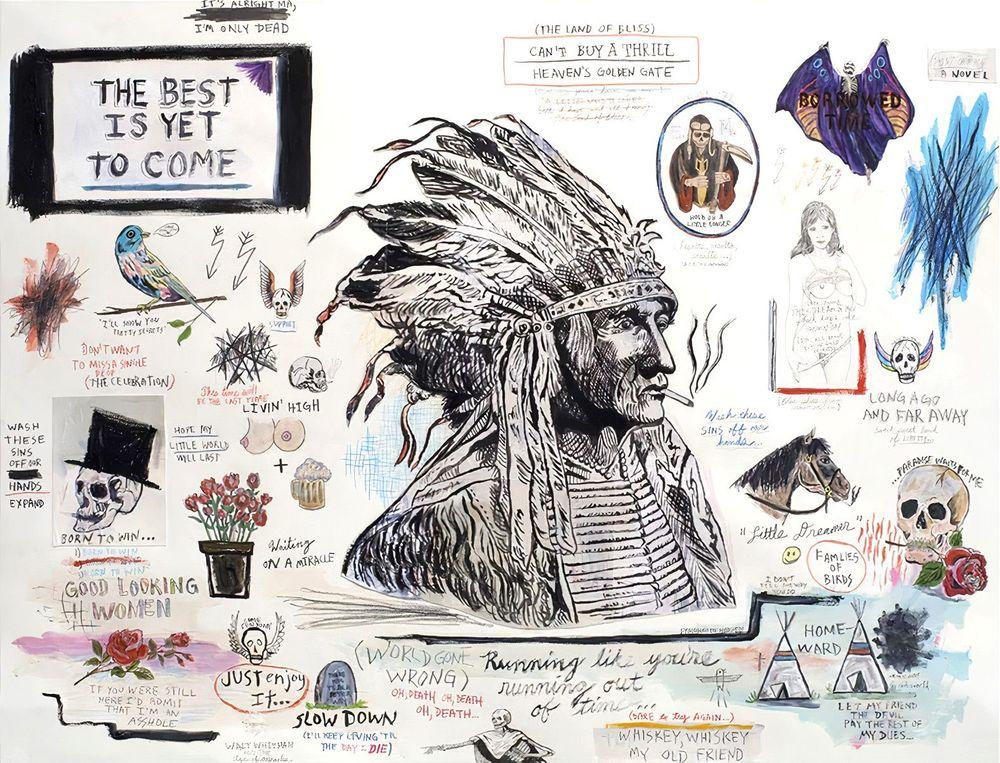 IT'S ALRIGHT MA,
I'M ONLY DEAD
THE BEST
IS YET
TO COME
(THE LAND OF BLISS)
CAN'T BUY A THRILL
HEAVEN'S GOLDEN GATE
BORROWED
TIME
A NOVEL
HOLD ON A
LITTLE LONGER
"I'LL SHOW YOU
PRETTY SECRETS"
SUPPORT
DON'T WANT
TO MISS A SINGLE
DROP
(THE CELEBRATION)
This time will
BE THE LAST TIME
LIVIN' HIGH
HOPE MY
LITTLE WORLD
WILL LAST
+
WASH
THESE
SINS
OFF OUR
HANDS
EXPAND
BORN TO WIN...
1) BORN TO WIN
BORN TO WIN
GOOD LOOKING
WOMEN
Waiting
ON A MIRACLE
Wash these
SINS off our
hands...
LONG AGO
AND FAR AWAY
PARADISE WAITS FOR ME
"Little Dreamer"
FAMLIES
OF
BIRDS
I DON'T
HOME-
WARD
LET MY FRIEND
THE DEVIL
PAY THE REST OF
MY DUES...
IF YOU WERE STILL
HERE I'D ADMIT
THAT I'M AN
ASSHOLE
JUST enjoy
It...
SLOW DOWN
(I'LL KEEP LIVING 'TIL
THE DAY I DIE)
WALT WHITMAN
(WORLD GONE
WRONG)
OH, DEATH OH, DEATH
OH, DEATH...
Running like you're
running out
of time...
(DARE to try AGAIN...)
WHISKEY, WHISKEY
MY OLD FRIEND